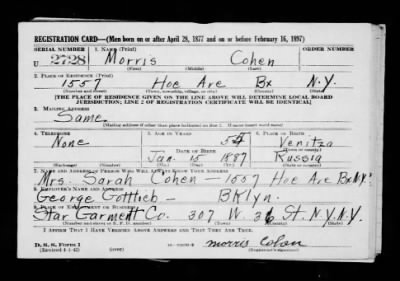 REGISTRATION CARD—(Men born on or after April 28, 1877 and on or before February 16, 1897)
SERIAL NUMBER 1. NAME (Print) ORDER NUMBER
U 2728 Morris Cohen
(First) (Middle) (Last)
2. PLACE OF RESIDENCE (Print)
1557 Hoe Ave Bx N.Y.
(Number and street) (Town, township, village, or city) (County) (State)
[THE PLACE OF RESIDENCE GIVEN ON THE LINE ABOVE WILL DETERMINE LOCAL BOARD
JURISDICTION; LINE 2 OF REGISTRATION CERTIFICATE WILL BE IDENTICAL]
3. MAILING ADDRESS
Same
[Mailing address if other than place indicated on line 2. If same insert word same]
4. TELEPHONE 5. AGE IN YEARS 6. PLACE OF BIRTH
None 54 Venitza
DATE OF BIRTH (Town or county)
Jan 15 1887 Russia
(Exchange) (Number) (Mo.) (Day) (Yr.) (State or country)
7. NAME AND ADDRESS OF PERSON WHO WILL ALWAYS KNOW YOUR ADDRESS
Mrs. Sarah Cohen — 1557 Hoe Ave Bx N.Y.
8. EMPLOYER'S NAME AND ADDRESS
George Gottlieb — BKlyn.
9. PLACE OF EMPLOYMENT OR BUSINESS
Star Garment Co. 307 W. 36 St. N.Y. N.Y.
(Number and street or R. F. D. number) (Town) (County) (State)
I AFFIRM THAT I HAVE VERIFIED ABOVE ANSWERS AND THAT THEY ARE TRUE.
D. S. S. Form 1
(Revised 4-1-42) (over) Morris Cohen
(Registrant's signature)